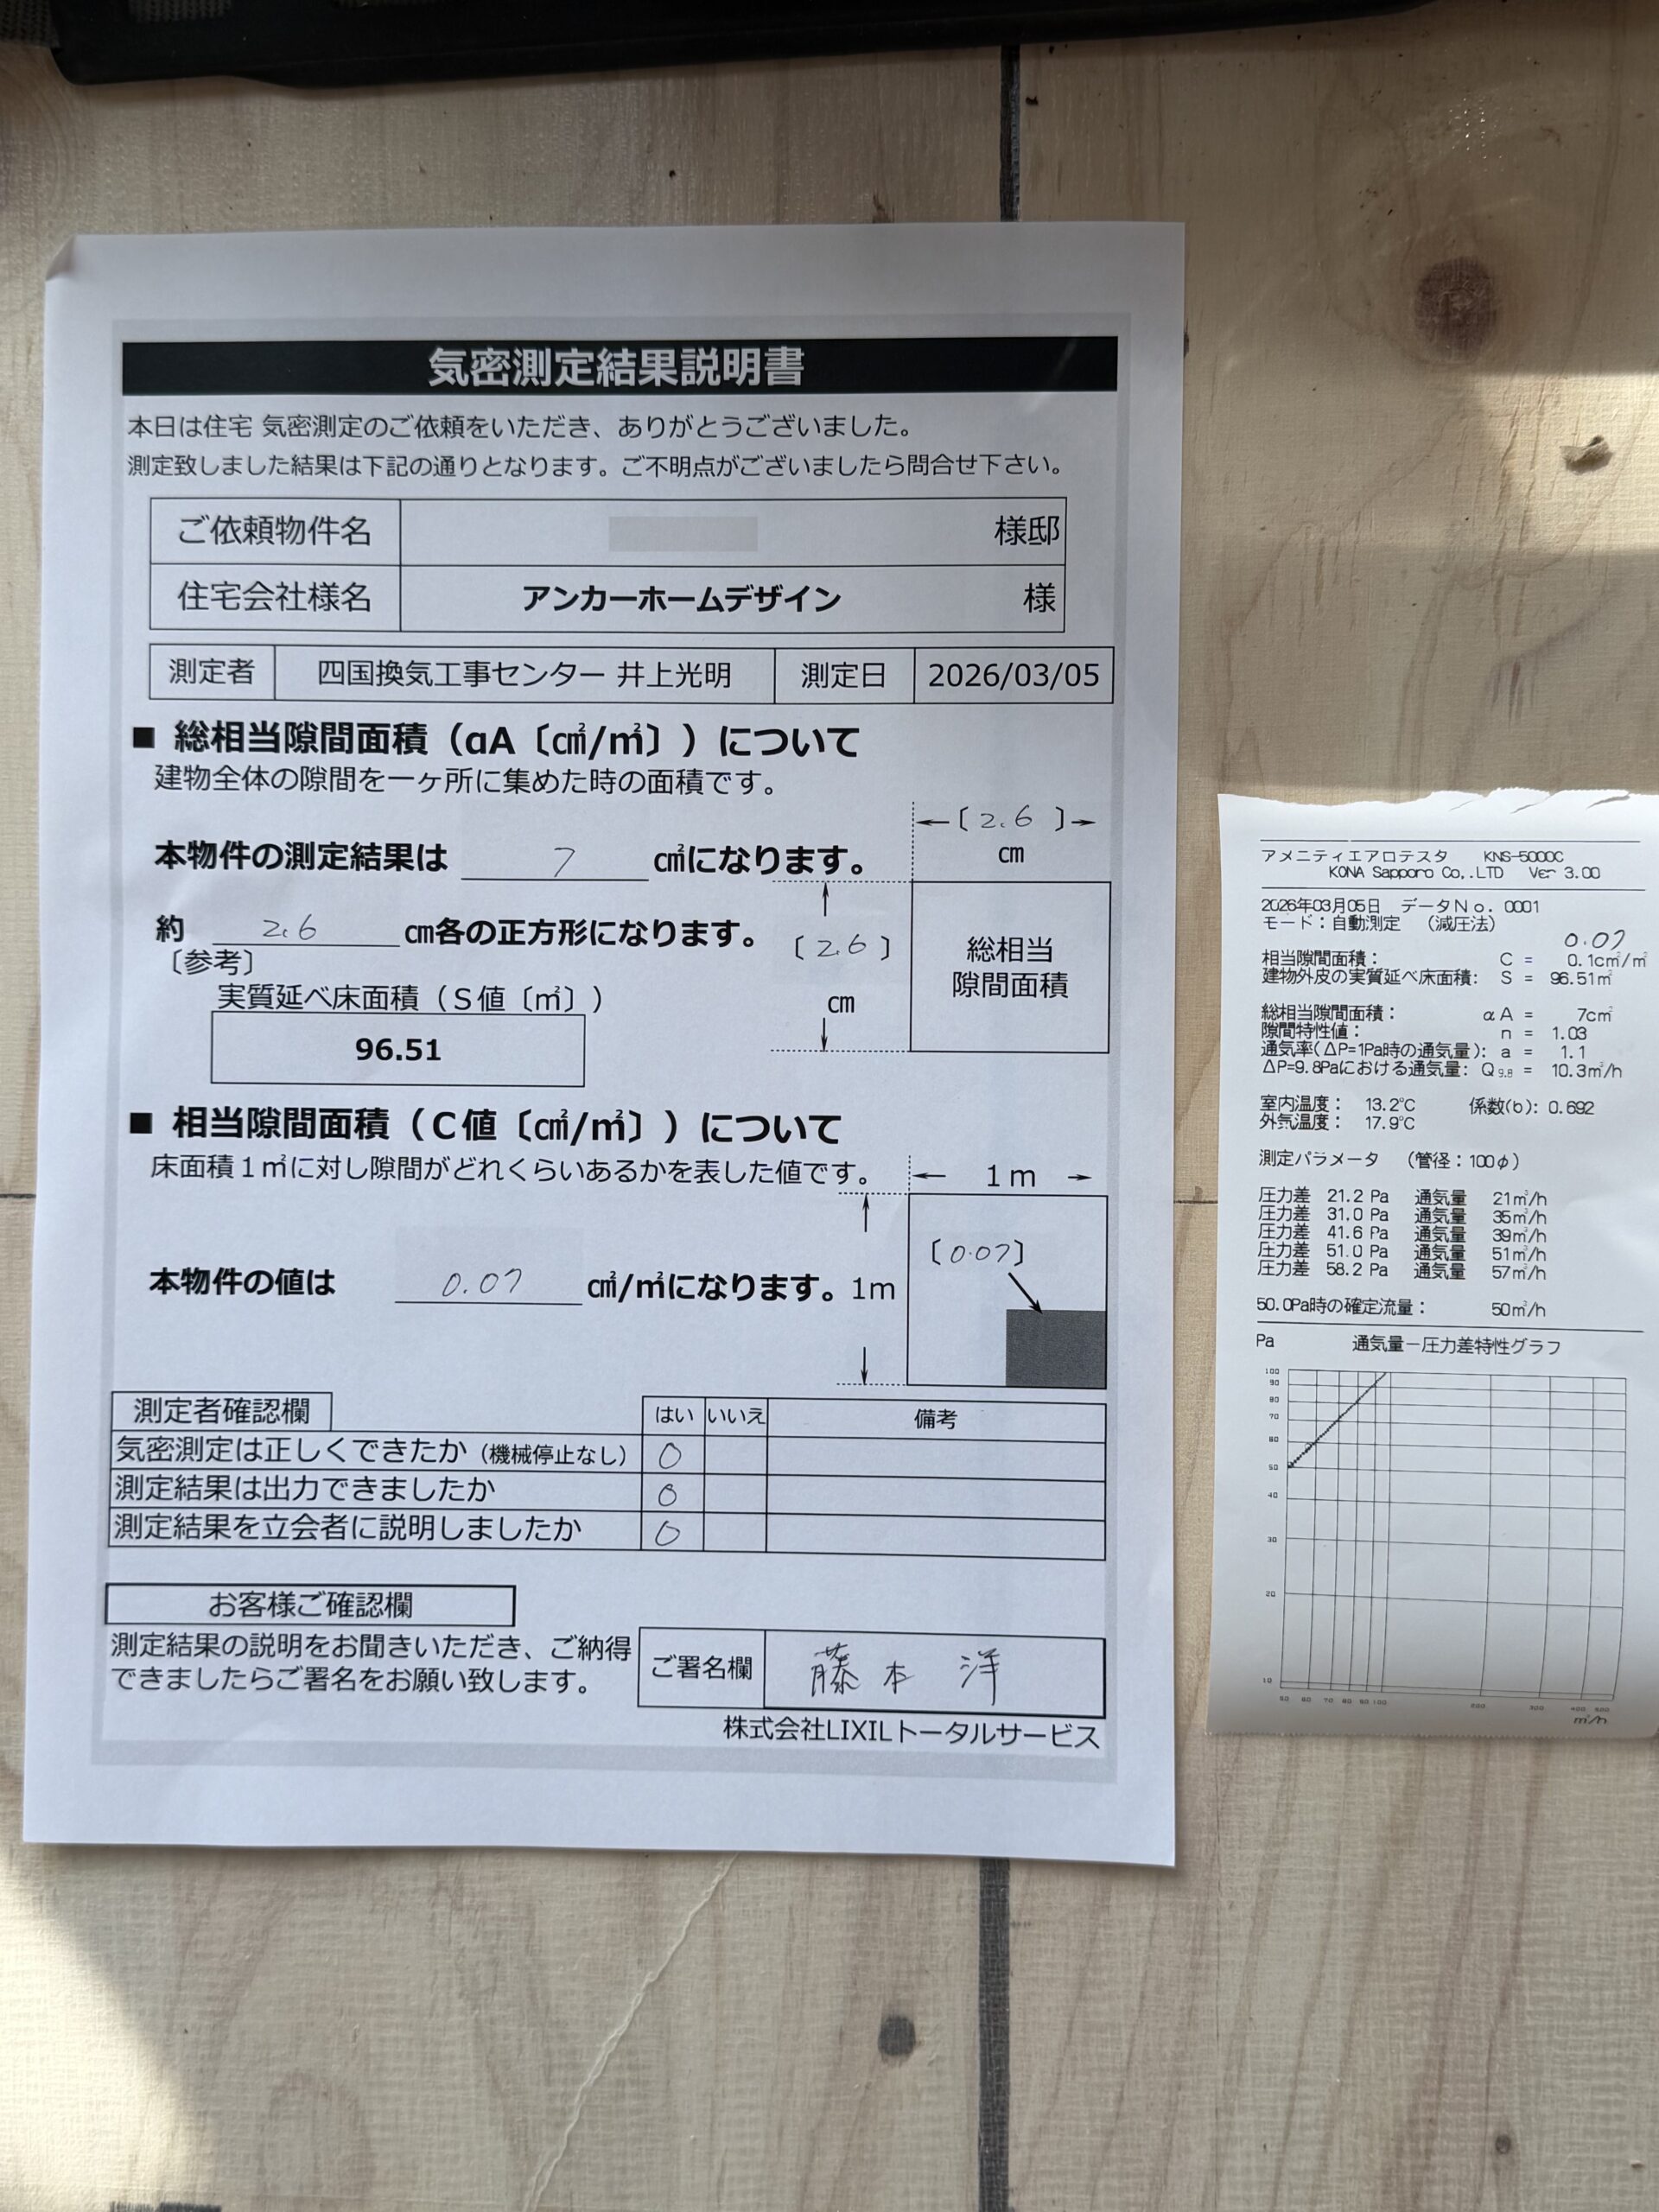 気密測定結果説明書
本日は住宅 気密測定のご依頼をいただき、ありがとうございました。
測定致しました結果は下記の通りとなります。ご不明点がございましたら問合せ下さい。
ご依頼物件名 様邸
住宅会社様名 アンカーホームデザイン 様
測定者 四国換気工事センター 井上光明 測定日 2026/03/05
■ 総相当隙間面積（αA〔㎠/㎡〕）について
建物全体の隙間を一ヶ所に集めた時の面積です。
本物件の測定結果は 7 ㎠になります。
約 2.6 ㎝各の正方形になります。
〔参考〕
実質延べ床面積（Ｓ値〔㎡〕）
96.51
←〔 2.6 〕→
cm
〔 2.6 〕
cm
総相当
隙間面積
■ 相当隙間面積（Ｃ値〔㎠/㎡〕）について
床面積１㎡に対し隙間がどれくらいあるかを表した値です。
本物件の値は 0.07 ㎠/㎡になります。
← 1ｍ →
1ｍ
〔0.07〕
測定者確認欄 はい いいえ 備考
気密測定は正しくできたか（機械停止なし） ○
測定結果は出力できましたか ○
測定結果を立会者に説明しましたか ○
お客様ご確認欄
測定結果の説明をお聞きいただき、ご納得
できましたらご署名をお願い致します。
ご署名欄 藤本 洋
株式会社LIXILトータルサービス
アメニティエアロテスタ KNS-5000C
KONA Sapporo Co,.LTD Ver 3.00
2026年03月05日 データＮｏ. 0001
モード：自動測定 （減圧法）
0.07
相当隙間面積： C = 0.1cm²/㎡
建物外皮の実質延べ床面積： S = 96.51㎡
総相当隙間面積： αA = 7cm²
隙間特性値： n = 1.03
通気率(ΔP=1Pa時の通気量)： a = 1.1
ΔP=9.8Paにおける通気量： Q9.8 = 10.3m³/h
室内温度： 13.2℃ 係数(b)： 0.692
外気温度： 17.9℃
測定パラメータ （管径：100φ）
圧力差 21.2 Pa 通気量 21m³/h
圧力差 31.0 Pa 通気量 35m³/h
圧力差 41.6 Pa 通気量 39m³/h
圧力差 51.0 Pa 通気量 51m³/h
圧力差 58.2 Pa 通気量 57m³/h
50.0Pa時の確定流量： 50m³/h
Pa 通気量－圧力差特性グラフ
100
90
80
70
60
50
40
30
20
10
50 60 70 80 90 100 200 300 400 500
m³/h